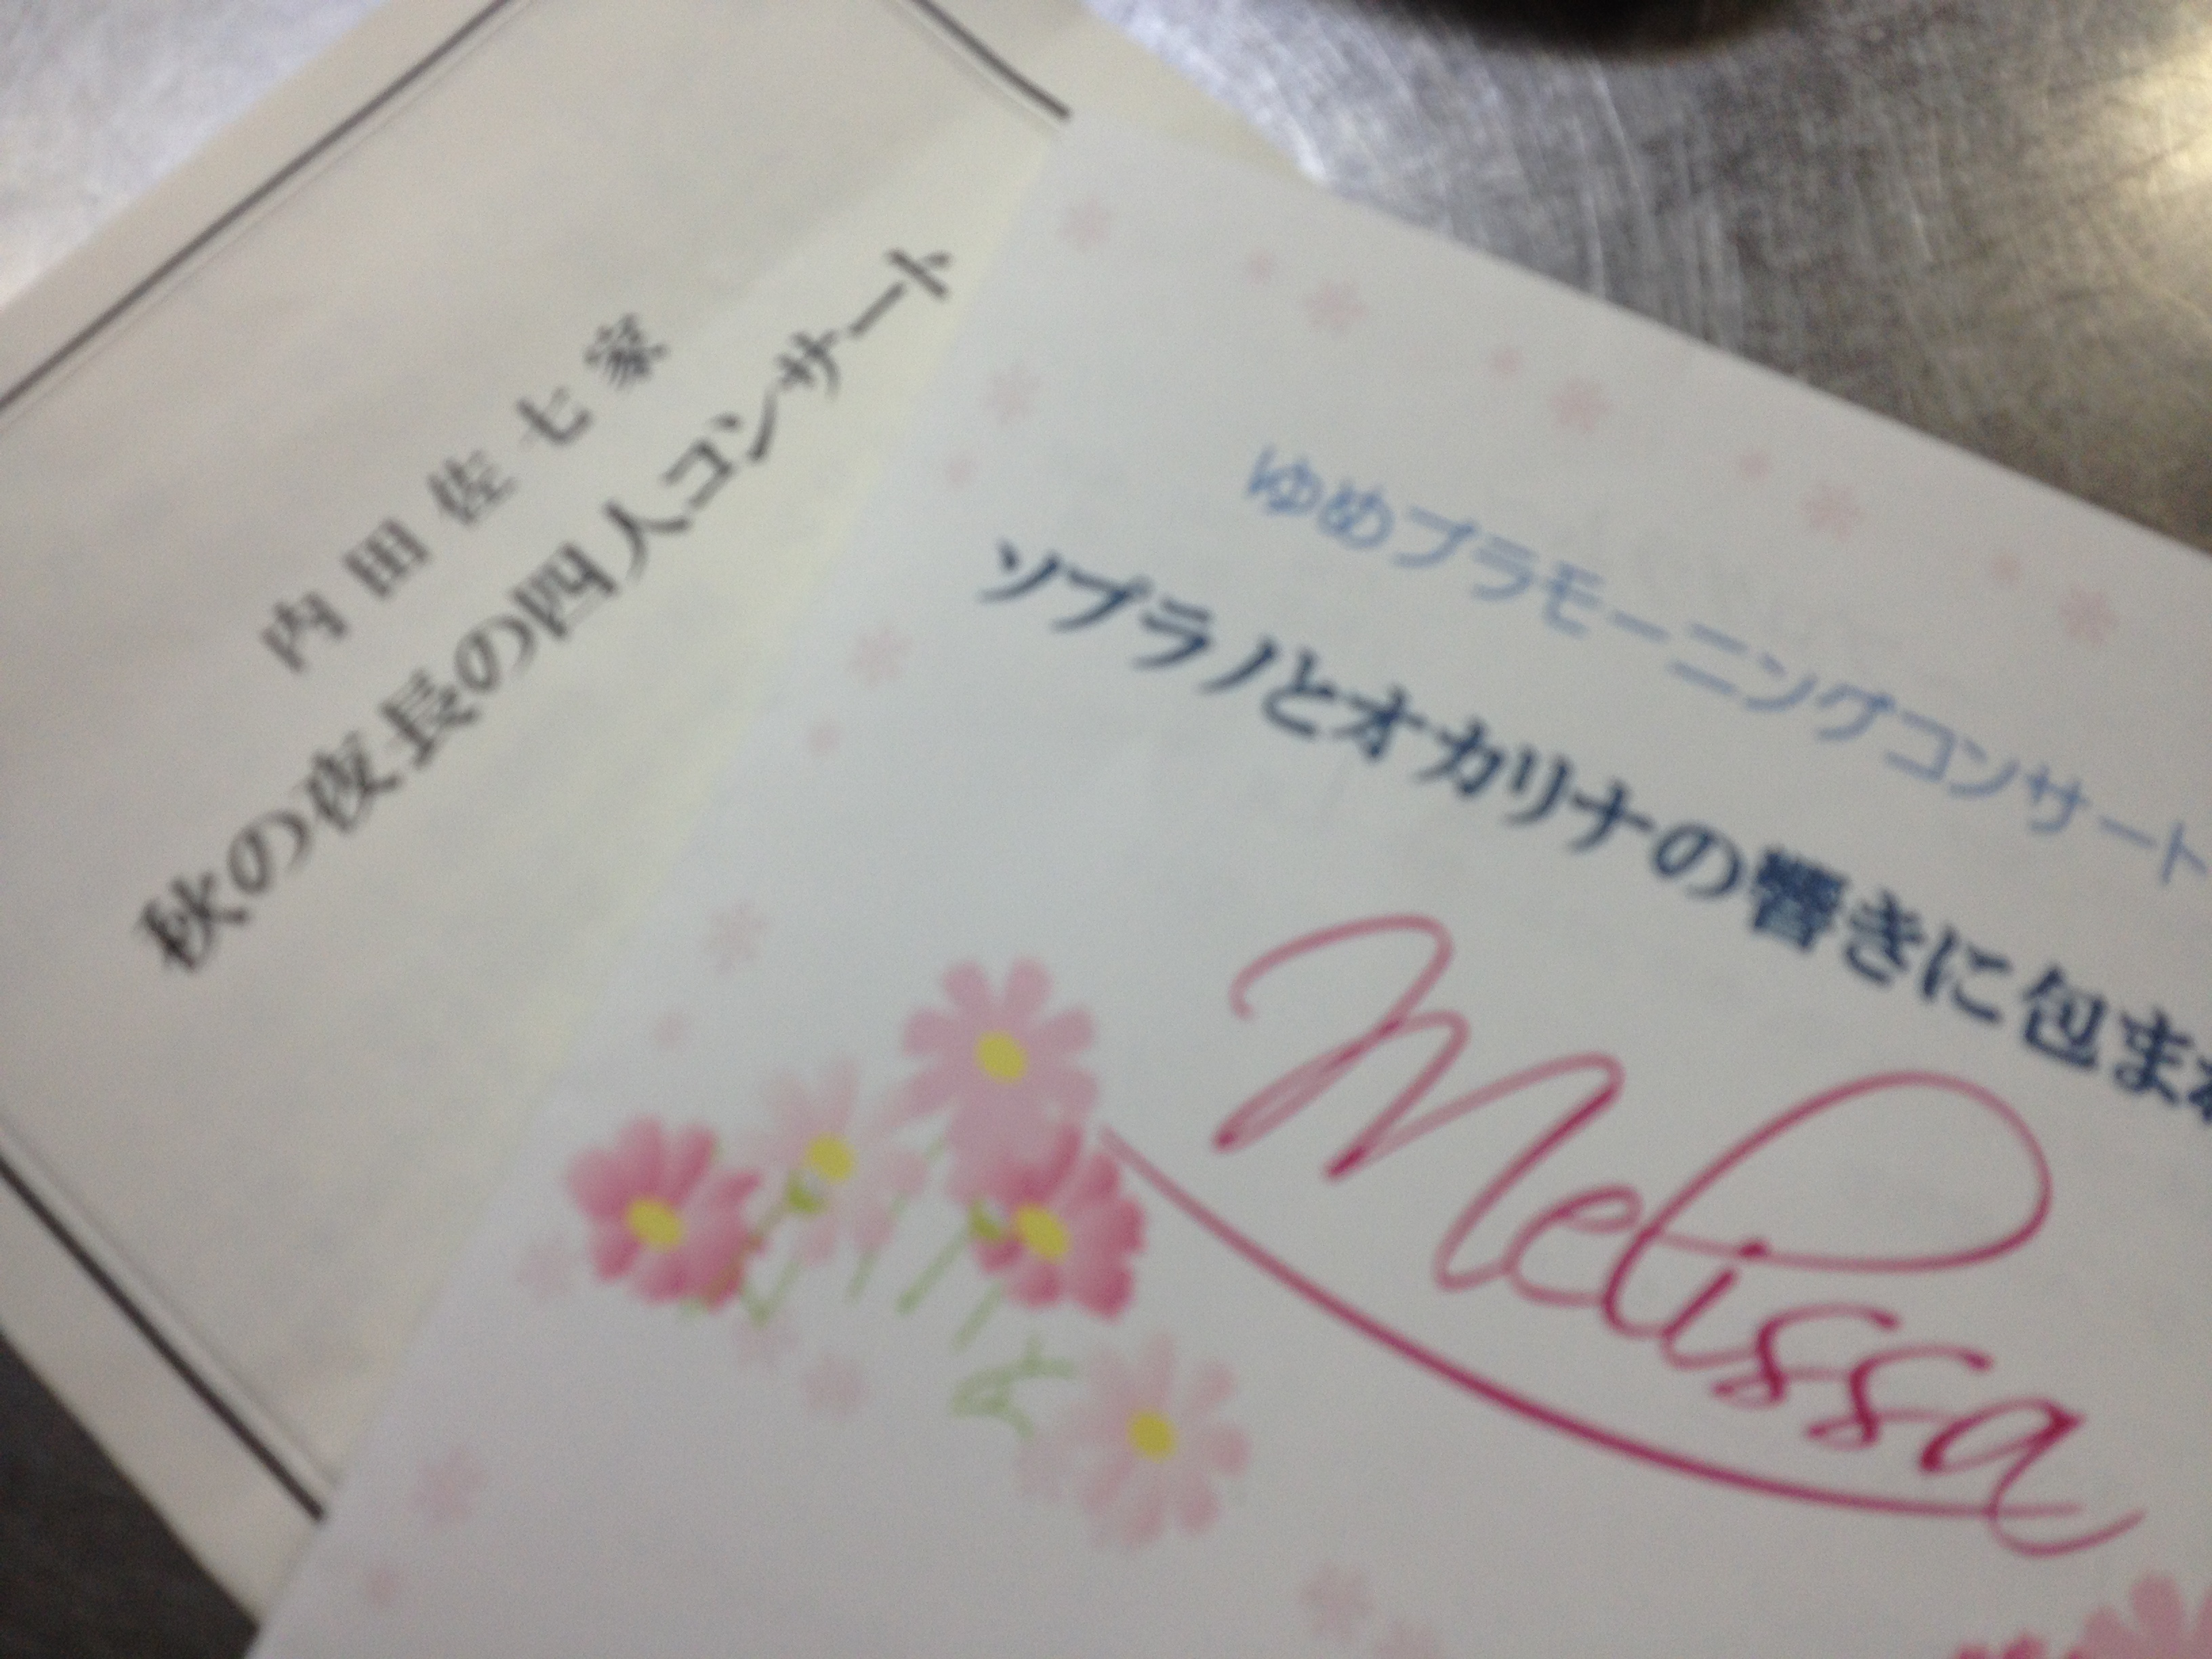 内田佐七家
秋の夜長の四人コンサート
ゆめプラモーニングコンサート
ソプラノとオカリナの響きに包まれ
Melissa